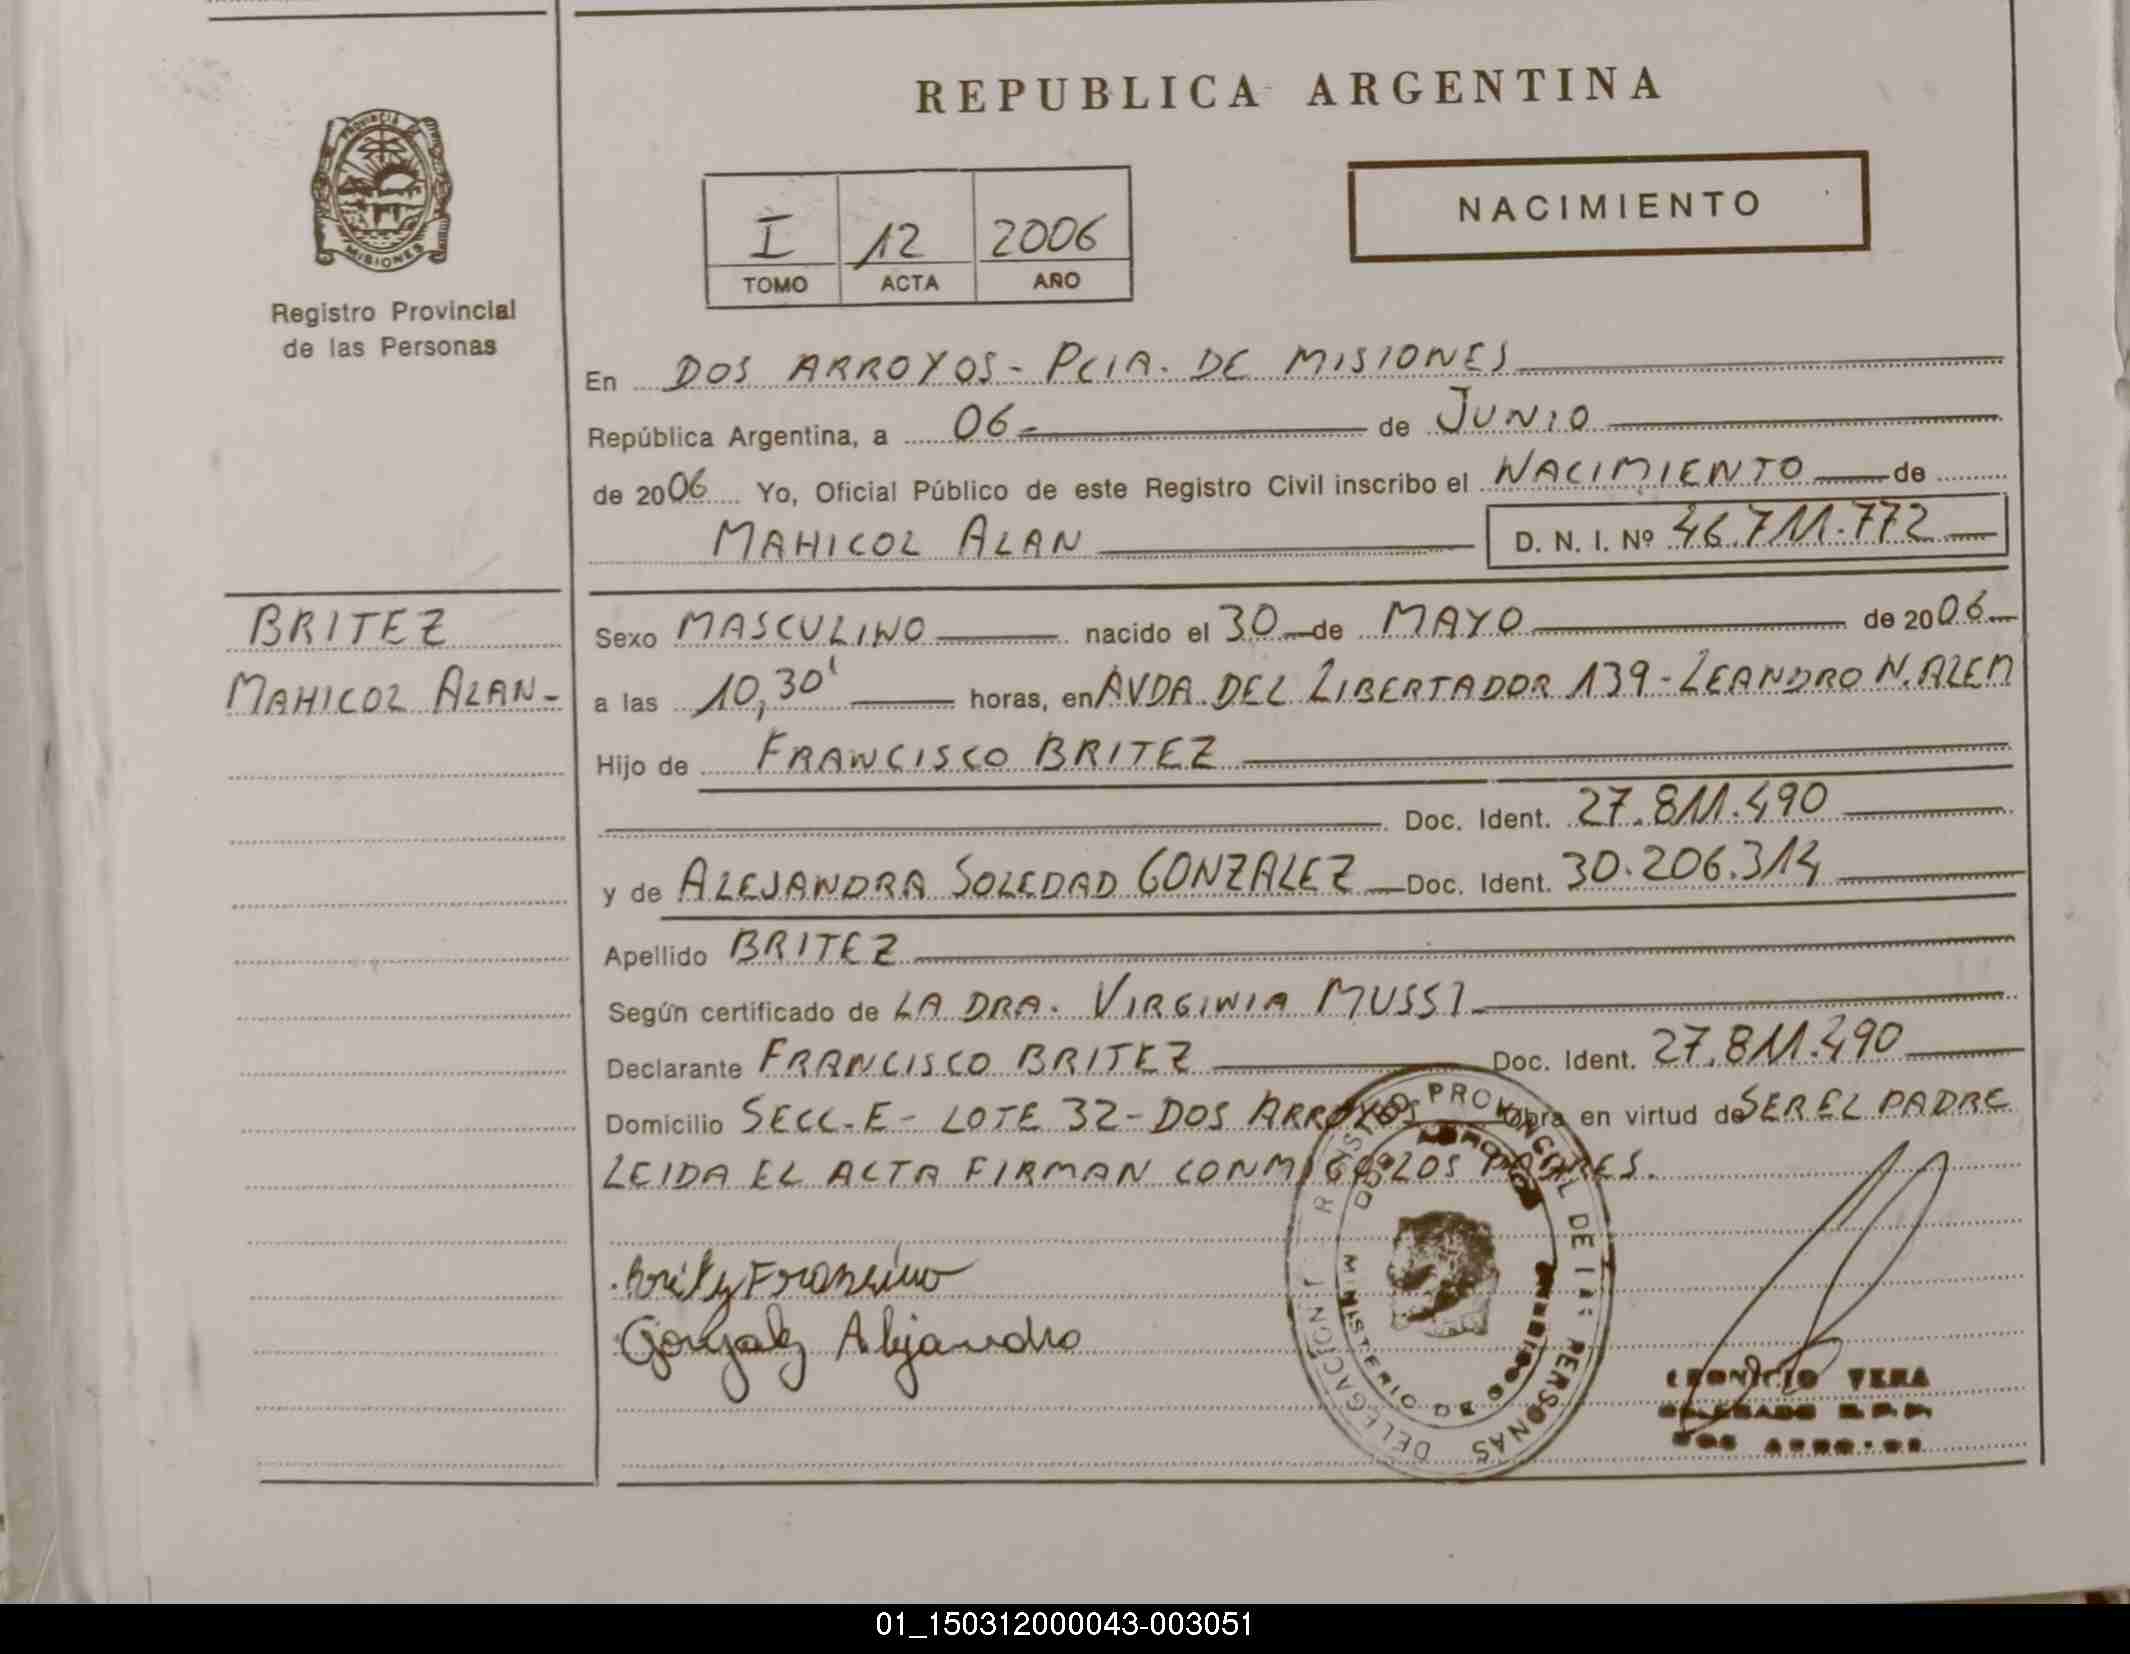 REPUBLICA ARGENTINA
PROVINCIA DE
MISIONES
Registro Provincial
de las Personas
NACIMIENTO
I 12 2006
TOMO ACTA AÑO
En DOS ARROYOS - PCIA. DE MISIONES
República Argentina, a 06 de JUNIO
de 2006 Yo, Oficial Público de este Registro Civil inscribo el NACIMIENTO de
MAHICOL ALAN D. N. I. Nº 46.711.772
BRITEZ
MAHICOL ALAN-
Sexo MASCULINO nacido el 30 de MAYO de 2006
a las 10,30' horas, en AVDA. DEL LIBERTADOR 139 - LEANDRO N. ALEM
Hijo de FRANCISCO BRITEZ
Doc. Ident. 27.811.490
y de ALEJANDRA SOLEDAD GONZALEZ Doc. Ident. 30.206.314
Apellido BRITEZ
Según certificado de LA DRA. VIRGINIA MUSSI
Declarante FRANCISCO BRITEZ Doc. Ident. 27.811.490
Domicilio SECC-E- LOTE 32- DOS ARROYOS Obra en virtud de SER EL PADRE
LEIDA EL ACTA FIRMAN CONMIGO LOS PADRES.
Britez Francisco
Gonzalez Alejandra
REGISTRO PROVINCIAL DE LAS PERSONAS
DELEGACION
DOS ARROYOS
MINISTERIO DE
LEONICIO VERA
DELEGADO R.P.P.
DOS ARROYOS
01_150312000043-003051